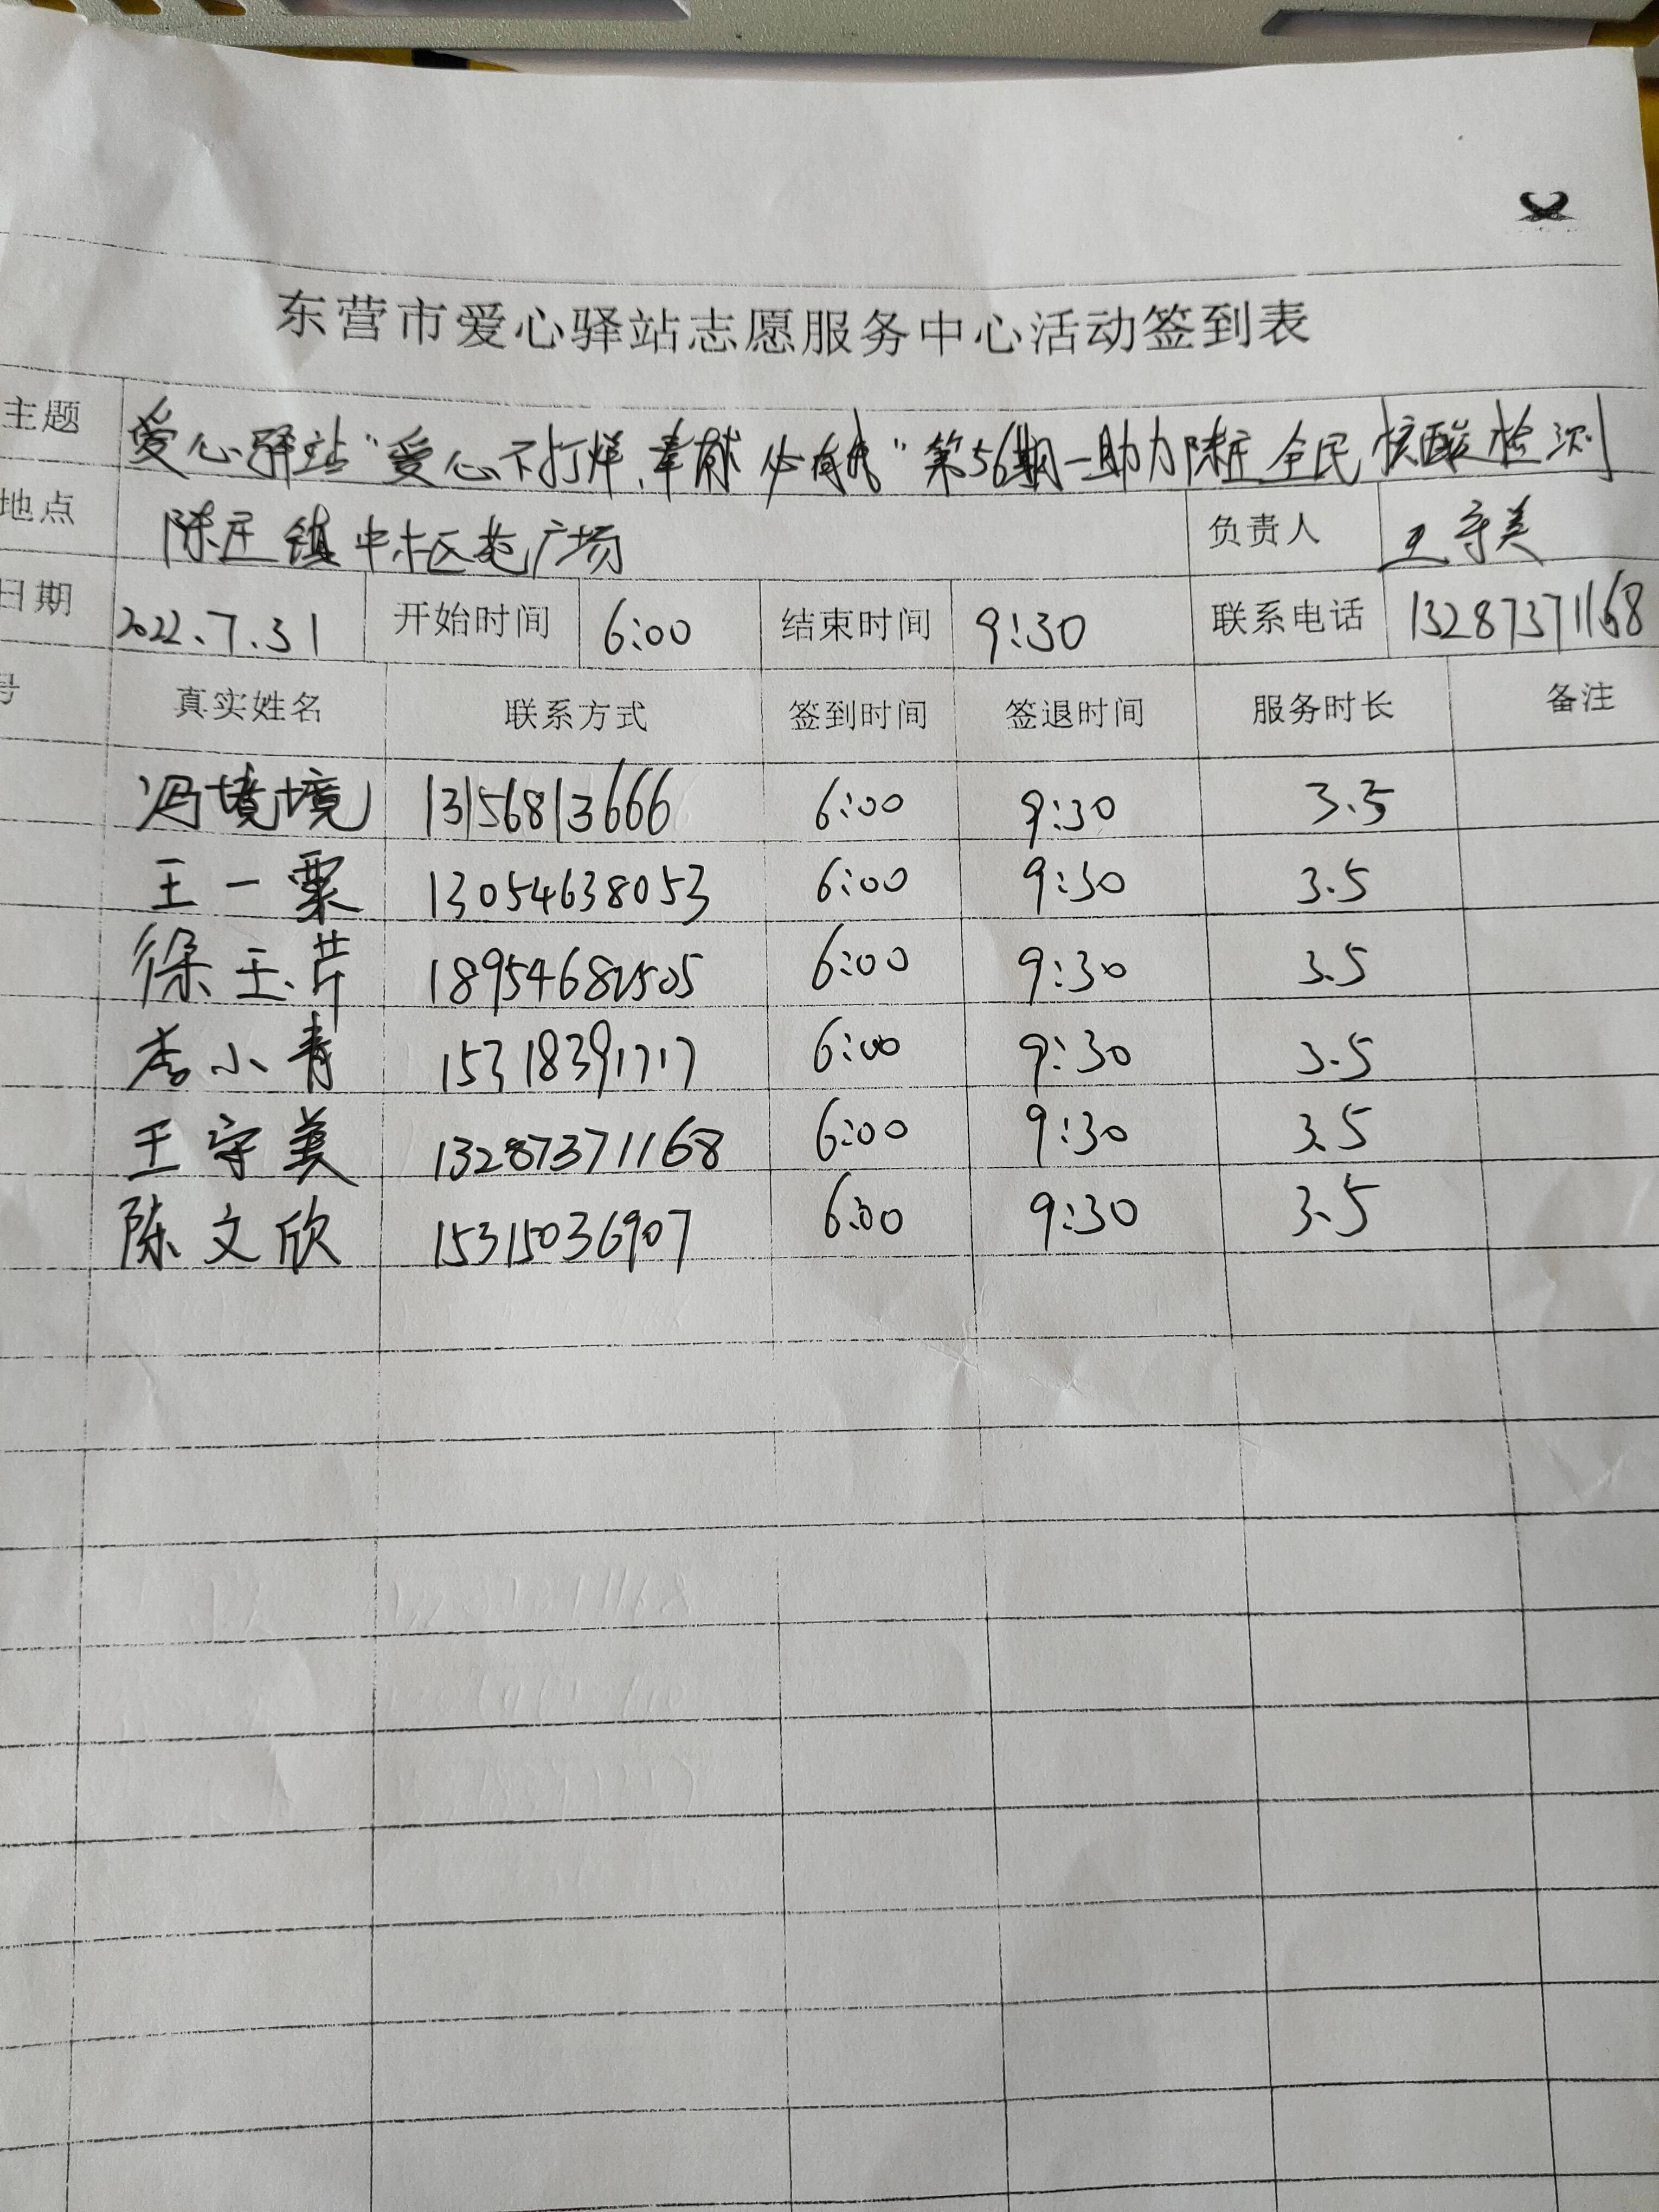 东营市爱心驿站志愿服务中心活动签到表
主题 爱心驿站"爱心不打烊,奉献 " 第56期—助力陈庄全民核酸检测
地点 陈庄镇中 广场 负责人 王守美
日期 2022.7.31 开始时间 6:00 结束时间 9:30 联系电话 13287371168
号 真实姓名 联系方式 签到时间 签退时间 服务时长 备注
冯境境 13156813666 6:00 9:30 3.5
王一粟 13054638053 6:00 9:30 3.5
徐玉芹 6:00 9:30 3.5
李小青 15318391717 6:00 9:30 3.5
王守美 13287371168 6:00 9:30 3.5
陈文欣 15315036907 6:00 9:30 3.5